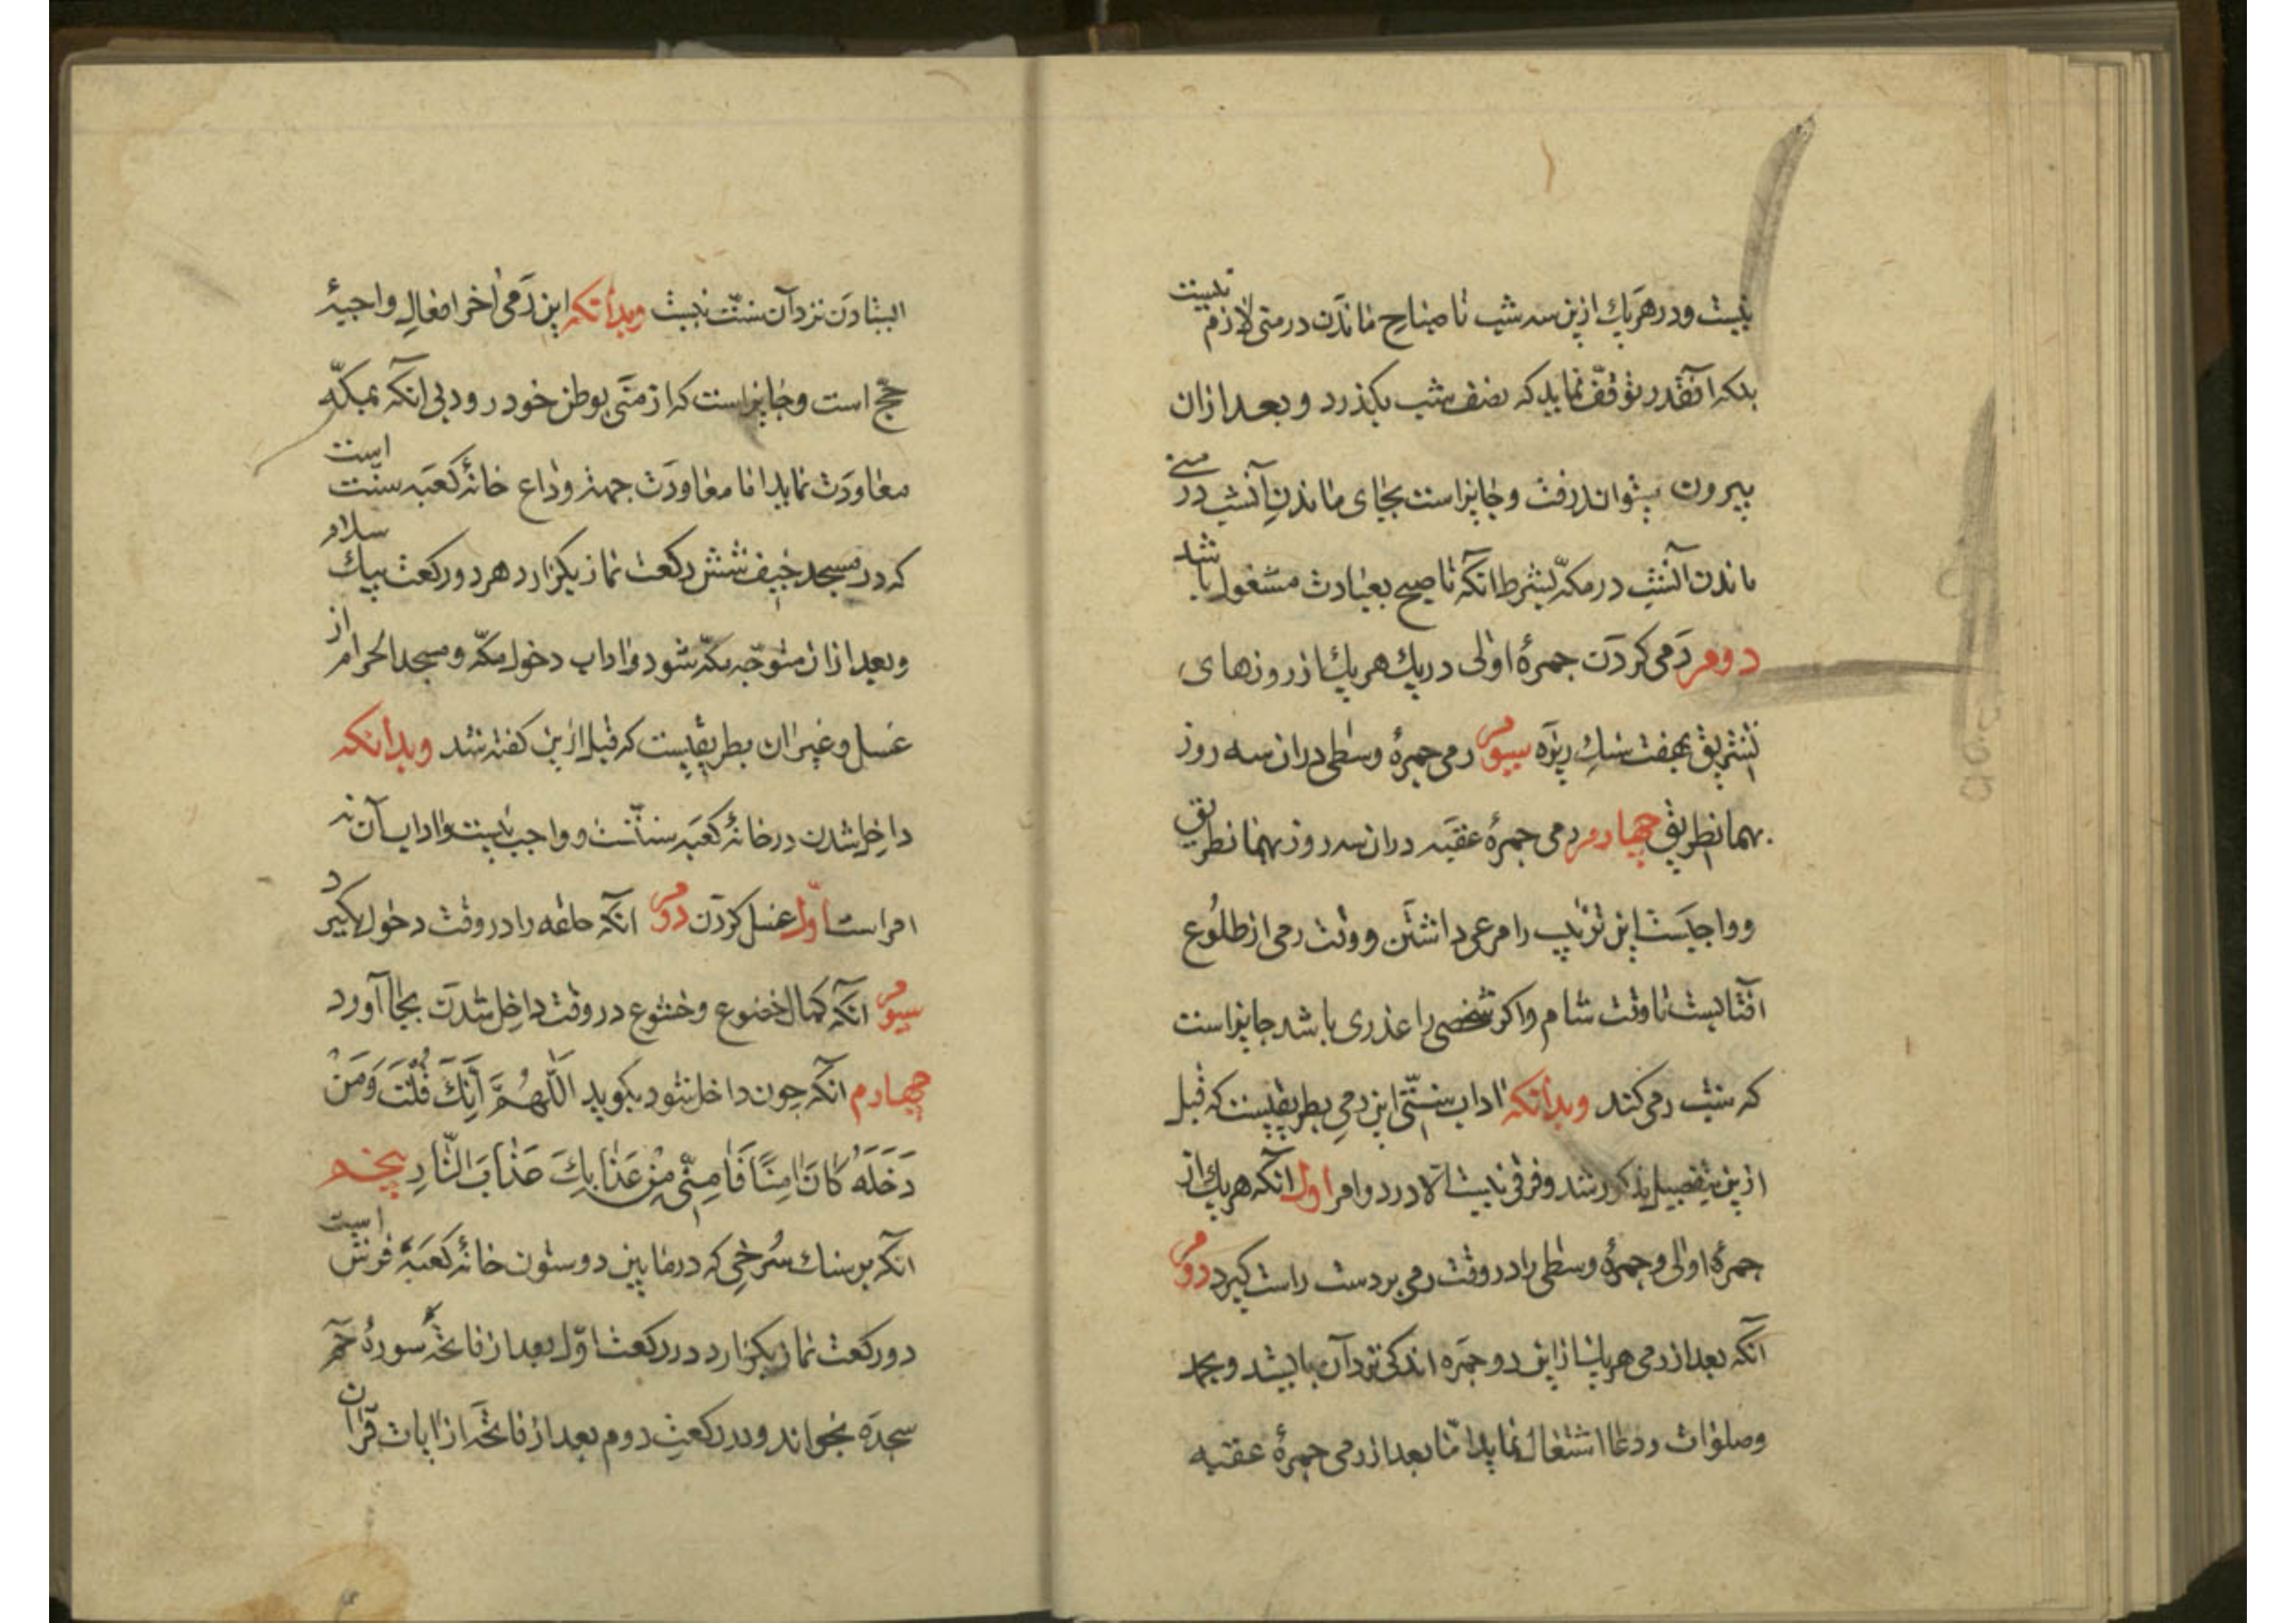 نیست و در هر یك ازین سه شب تا صباح ماندن در منی لازم نیست
بلکه آنقدر توقّف نماید که نصف شب بگذرد و بعد ازان
بیرون میتواند رفت و جایز است بجای ماندن آنشب در منی
ماندن آنشب در مکّه بشرط آنکه تا صبح بعبادت مشغول باشد
دوم رَمی کردن جمرهٔ اولی در یك هر یك از روزهای
تشریق بهفت سنك ریزه سیوم رمی جمرهٔ وسطی دران سه روز
بهمانطریق چهارم رمی جمرهٔ عقبه دران سه روز بهمانطریق
و واجبست این ترتیب را مرعی داشتن و وقت رمی از طلوع
آفتابست تا وقت شام و اکر شخصی را عذری باشد جایز است
که شب رمی کند وبدانکه اداب سنّتی این رمی بطریقیست که قبل
ازین بتفصیل مذکور شد و فرقی نیست الا در دو امر اول آنکه هر یك از
جمرهٔ اولی و جمرهٔ وسطی را در وقت رمی بر دست راست کیرد دوم
آنکه بعد از رمی هر یك از این دو جمره اندکی نزد آن بایستد و بحمد
وصلوات و دعا اشتغال نماید امّا بعد از رمی جمرهٔ عقبه
ایستادن نزد آن سنّت نیست وبدانکه این رَمی آخر افعال واجبهٔ
حجّ است و جایز است که از منی بوطن خود رود بی انکه بمکّه
معاودت نماید اما معاودت جهة وداع خانهٔ کعبه سنّت است
که در مسجد خیف شش رکعت نماز بکزارد هر دو رکعت بیك سلام
و بعد ازان متوجّه مکّه شود و اداب دخول مکّه و مسجد الحرام از
غسل و غیر ان بطریقیست که قبل ازین کفته شد وبدانکه
داخل شدن در خانهٔ کعبه سنّتست و واجب نیست و اداب آن نه
امر است اوّل غسل کردن دوم انکه جامه را در وقت دخول نکیرد
سیوم انکه کمال خضوع و خشوع در وقت داخل شدن بجا آورد
چهارم آنکه چون داخل شود بکوید اَللّهُمَّ اِنَّكَ قُلْتَ وَمَنْ
دَخَلَهُ کَانَ اٰمِنًا فَاٰمِنّی مِنْ عَذابِكَ عَذابَ النّارِ پنجم
آنکه بر سنك سُرخی که در مابین دو ستون خانهٔ کعبه فرش است
دو رکعت نماز بکزارد در رکعت اوّل بعد از فاتحه سورهٔ حم
سجده بخواند و در رکعت دوم بعد از فاتحه از ایات قرآن